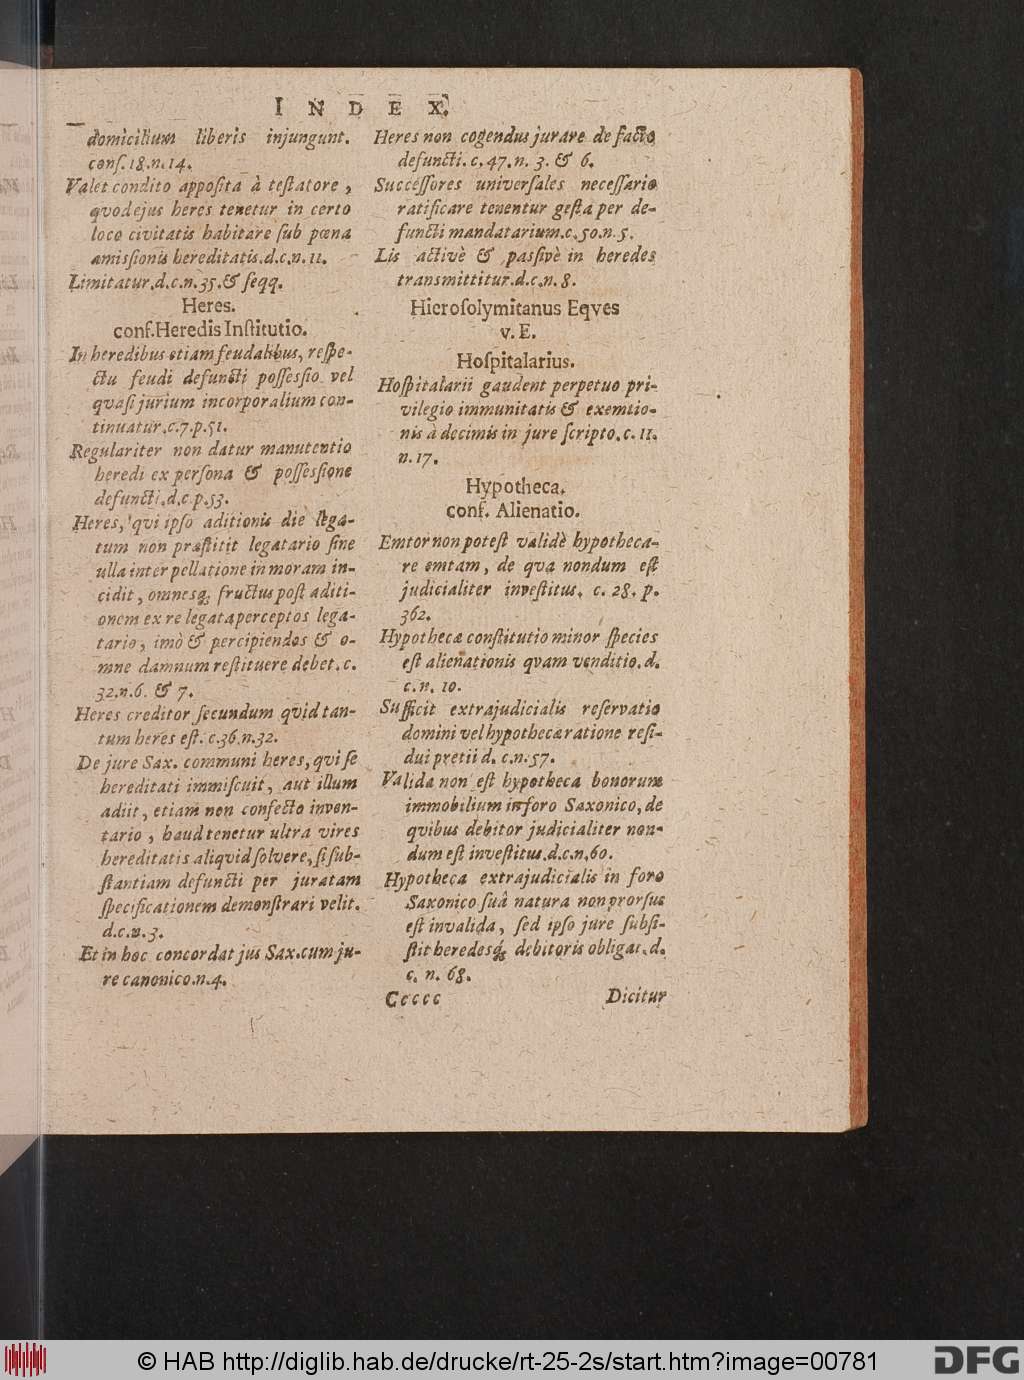 INDEX.
domicilium liberis injungunt.
conſ. 18. n. 14.
Valet condito appoſita à teſtatore,
quod ejus heres tenetur in certo
loco civitatis habitare ſub pœna
amisſionis hereditatis. d. c. n. 11.
Limitatur. d. c. n. 35. & ſeqq.
Heres.
conſ. Heredis Inſtitutio.
In heredibus etiam feudalibus, reſpe-
ctu feudi defuncti poſſeſſio vel
quaſi jurium incorporalium con-
tinuatur. c. 7. p. 51.
Regulariter non datur manutentio
heredi ex perſona & poſſeſſione
defuncti. d. c. p. 53.
Heres, qui ipſo aditionis die lega-
tum non præſtitit legatario ſine
ulla interpellatione in moram in-
cidit, omnesq; fructus poſt aditi-
onem ex re legata perceptos lega-
tario, imò & percipiendos & o-
mne damnum reſtituere debet. c.
32. n. 6. & 7.
Heres creditor ſecundum qvid tan-
tum heres eſt. c. 36. n. 32.
De jure Sax. communi heres, qvi ſe
hereditati immiſcuit, aut illum
adiit, etiam non confecto inven-
tario, haud tenetur ultra vires
hereditatis aliqvid ſolvere, ſi ſub-
ſtantiam defuncti per juratam
ſpecificationem demonſtrari velit.
d. c. n. 3.
Et in hoc concordat jus Sax. cum ju-
re canonico. n. 4.
Heres non cogendus jurare de facto
defuncti. c. 47. n. 3. & 6.
Succeſſores univerſales neceſſario
ratificare tenentur geſta per de-
functi mandatarium. c. 50. n. 5.
Lis activè & paſſivè in heredes
transmittitur. d. c. n. 8.
Hieroſolymitanus Eqves
v. E.
Hoſpitalarius.
Hoſpitalarii gaudent perpetuo pri-
vilegio immunitatis & exemtio-
nis à decimis in jure ſcripto. c. 11.
n. 17.
Hypotheca.
conſ. Alienatio.
Emtor non poteſt validè hypotheca-
re emtam, de qva nondum eſt
judicialiter inveſtitus. c. 28. p.
362.
Hypothecæ conſtitutio minor ſpecies
eſt alienationis qvam venditio. d.
c. n. 10.
Sufficit extrajudicialis reſervatio
domini vel hypothecæ ratione reſi-
dui pretii d. c. n. 57.
Valida non eſt hypotheca bonorum
immobilium in foro Saxonico, de
qvibus debitor judicialiter non-
dum eſt inveſtitus. d. c. n. 60.
Hypotheca extrajudicialis in foro
Saxonico ſuâ natura non prorſus
eſt invalida, ſed ipſo jure ſubſi-
ſtit heredesq; debitoris obligat. d.
c. n. 68.
Ccccc Dicitur
© HAB http://diglib.hab.de/drucke/rt-25-2s/start.htm?image=00781
DFG